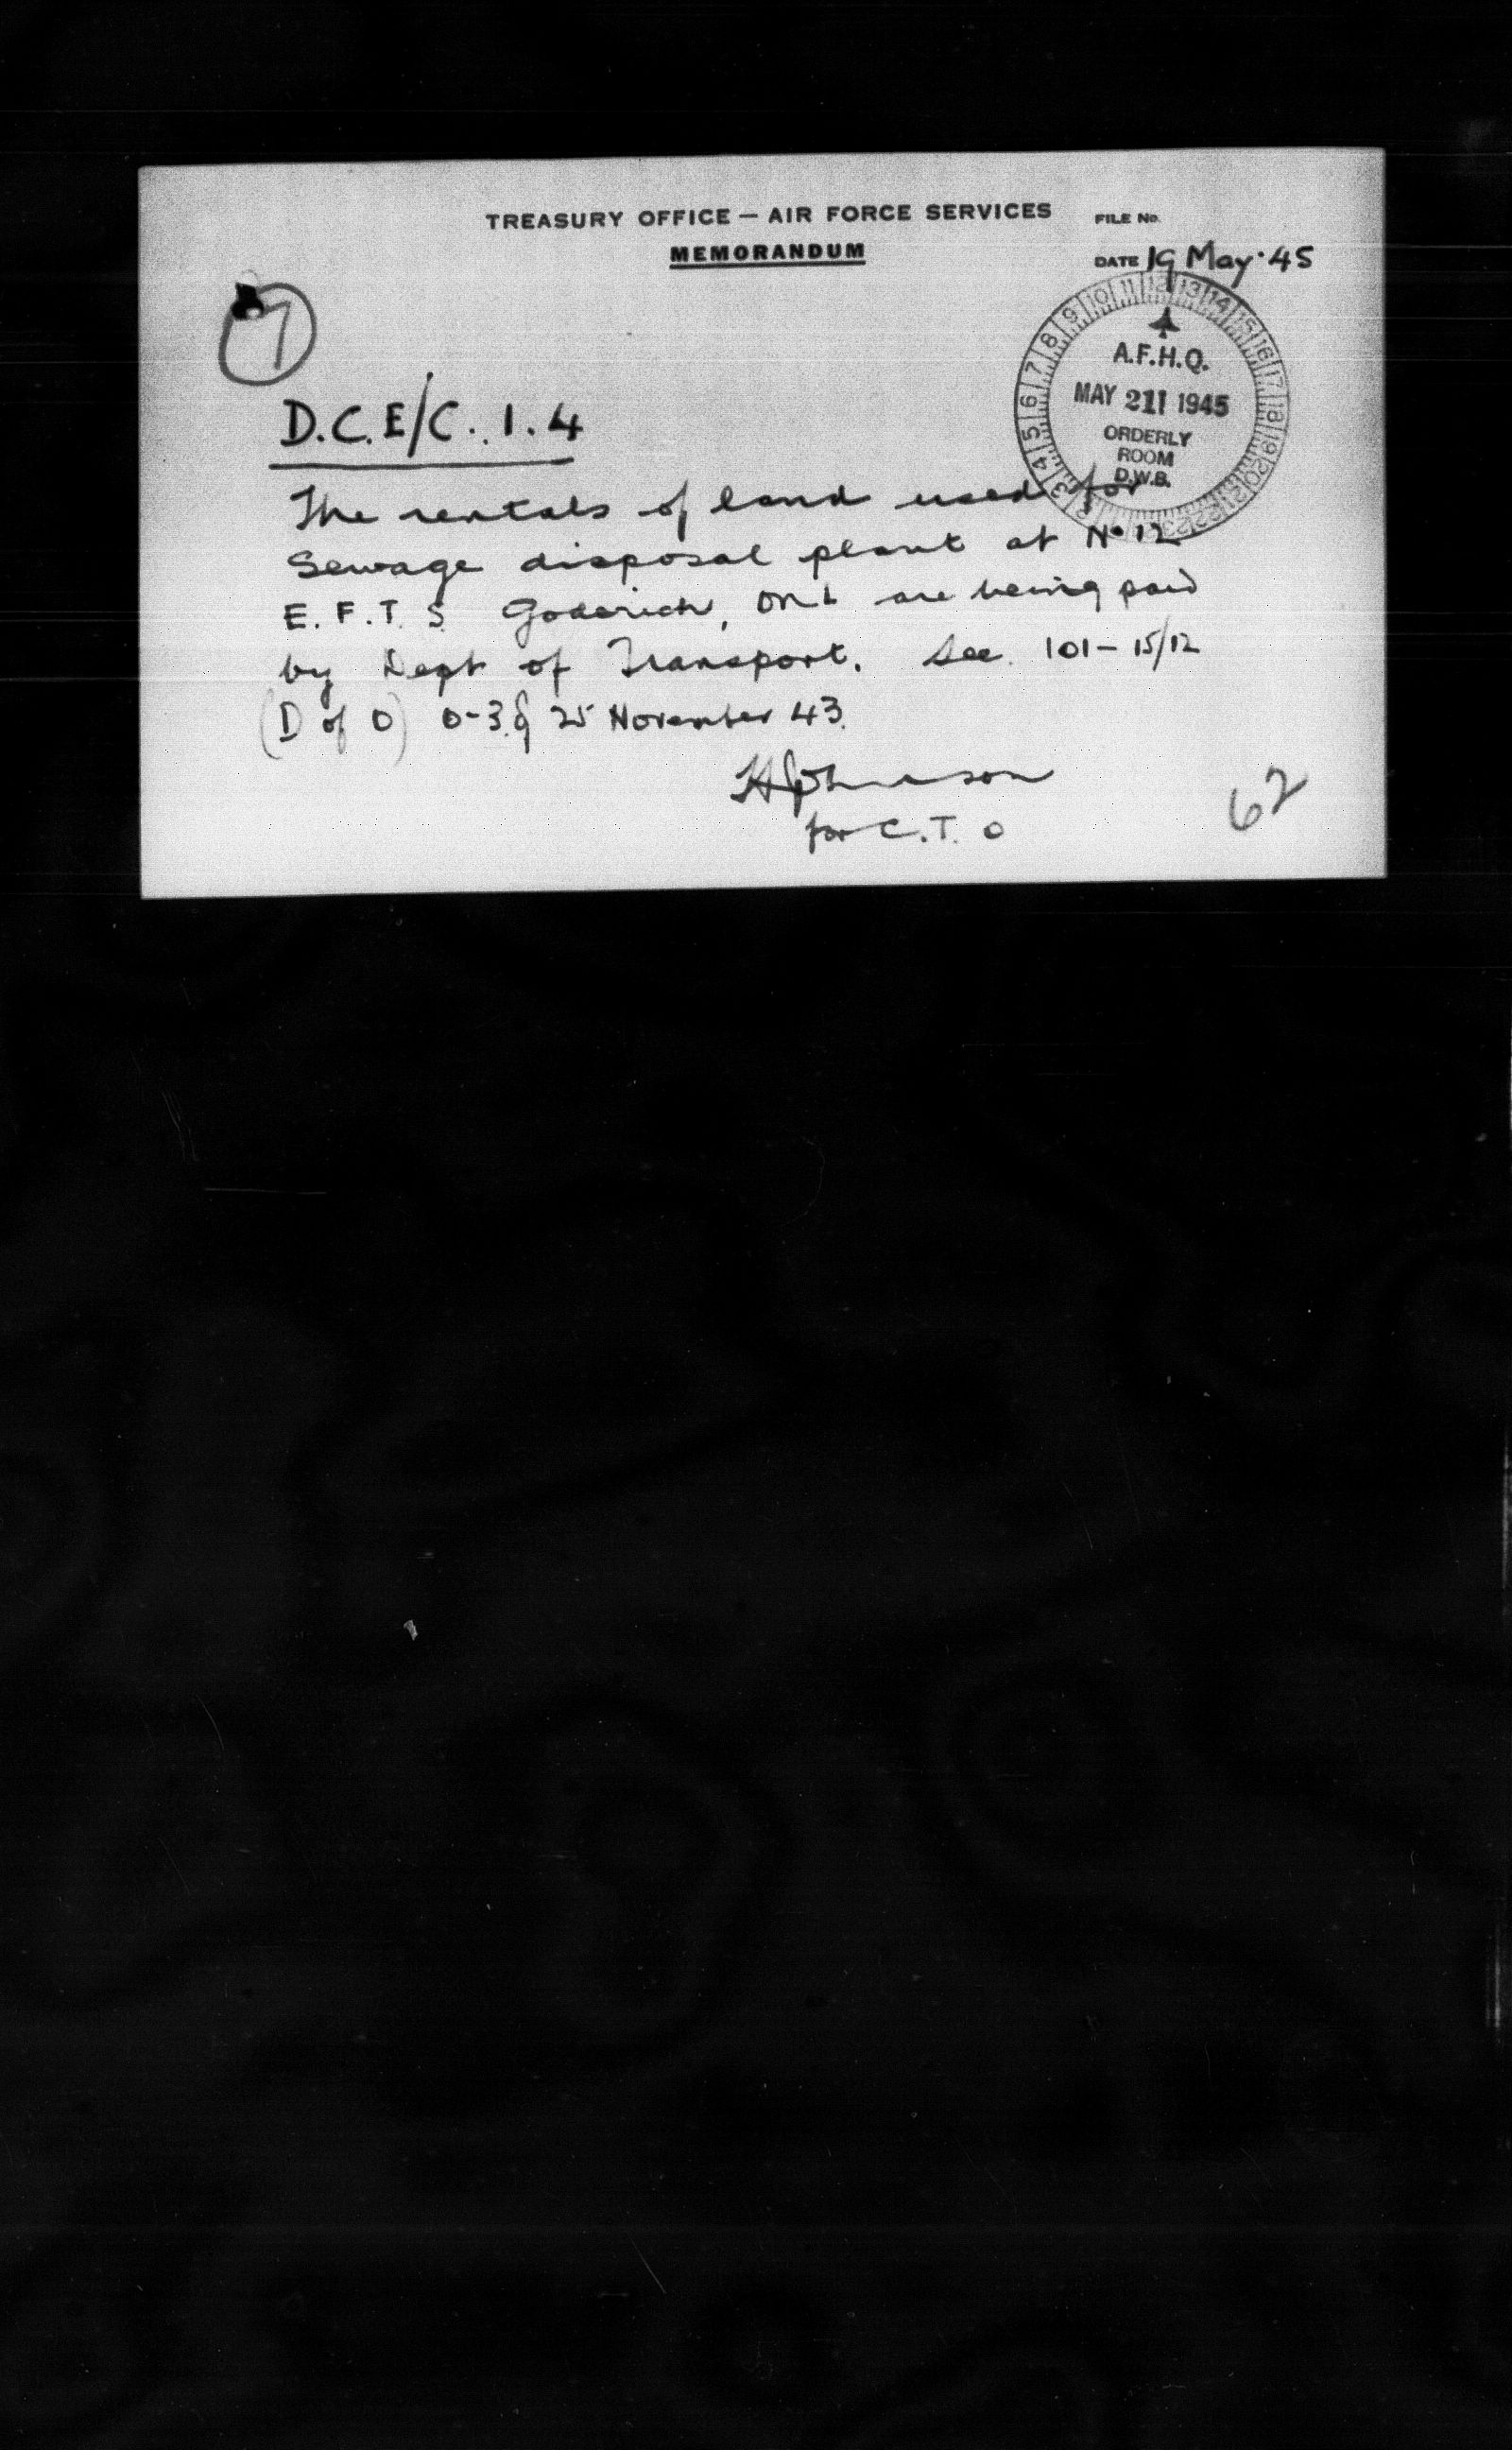 TREASURY OFFICE — AIR FORCE SERVICES
FILE No.
MEMORANDUM
DATE 19 May '45
7
A.F.H.Q.
MAY 21 1945
ORDERLY
ROOM
D.W.B.
D.C.E/C. 1.4
The rentals of land used for
Sewage disposal plant at No 12
E.F.T.S. Goderich, Ont are being paid
by Dept of Transport. See 101-15/12
(D of O) 0-3 of 25 November 43.
HJohnson
for C.T.O
62